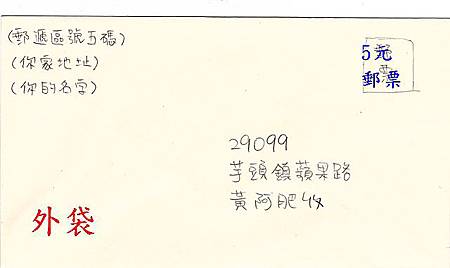 (郵遞區號5碼)
(你家地址)
(你的名字)
5元
郵票
29099
芋頭鎮蘋果路
黃阿肥 收
外袋